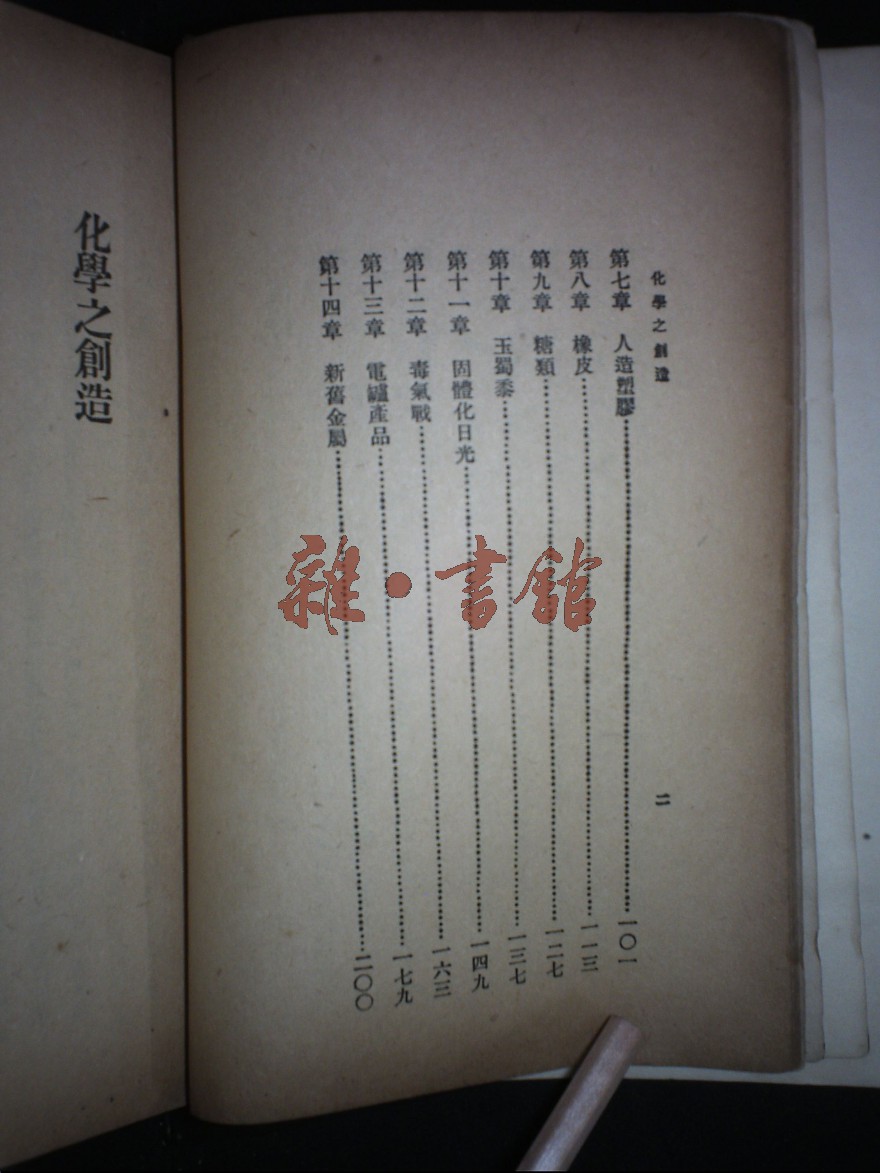 化學之創造
二
第七章 人造塑膠………一〇一
第八章 橡皮………一一三
第九章 糖類………一二七
第十章 玉蜀黍………一三七
第十一章 固體化日光………一四九
第十二章 毒氣戰………一六三
第十三章 電爐產品………一七九
第十四章 新舊金屬………二〇〇
化學之創造
雜·書館